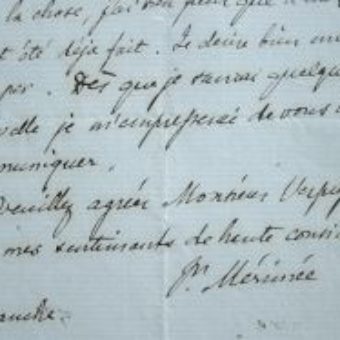 la chose, j'ai bien peur que
été déjà fait. Je désire bien
Dès que je saurai quelque
je m'empresserai de vous
muniquer.
Veuillez agréer Monsieur
mes sentiments de haute consi
Pr Mérimée